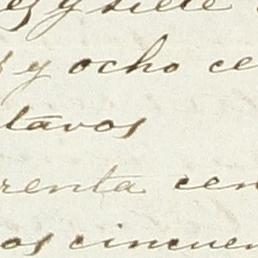 ez y siete
z y ocho ce
tavos
renta cen
os cincuen